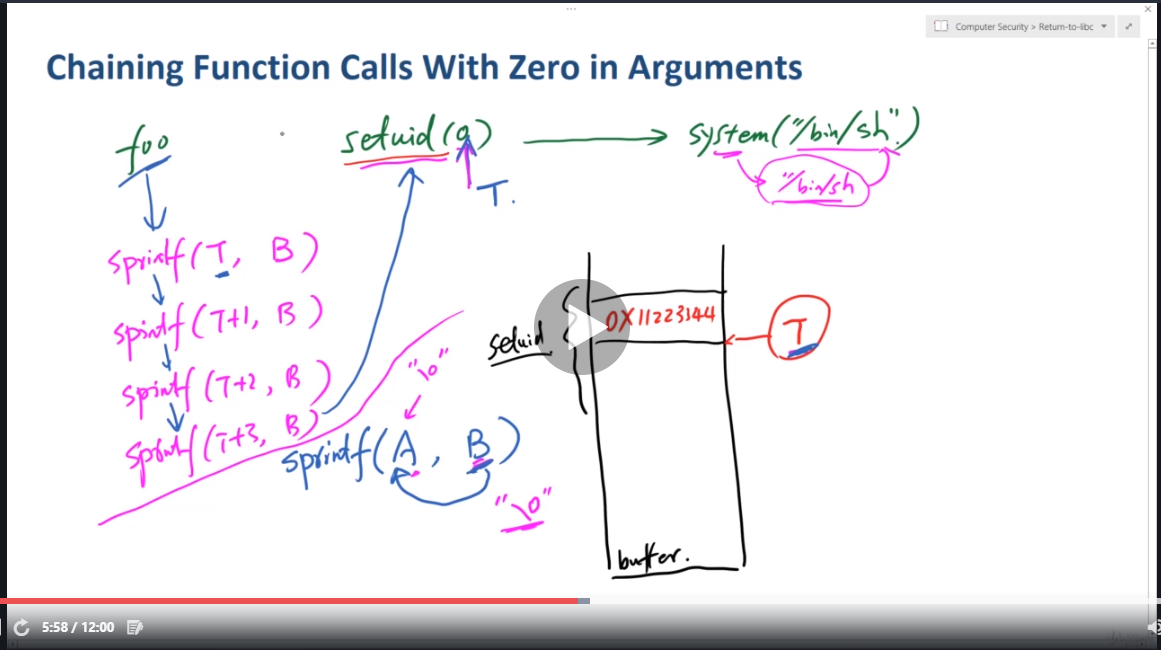 Computer Security > Return-to-libc
Chaining Function Calls With Zero in Arguments
foo
setuid(0)
system("/bin/sh")
"/bin/sh
T.
sprintf(T, B)
sprintf(T+1, B)
sprintf(T+2, B)
sprintf(T+3, B)
setuid
0X11223344
T
"\0"
sprintf(A, B)
"\0"
buffer.
5:58 / 12:00